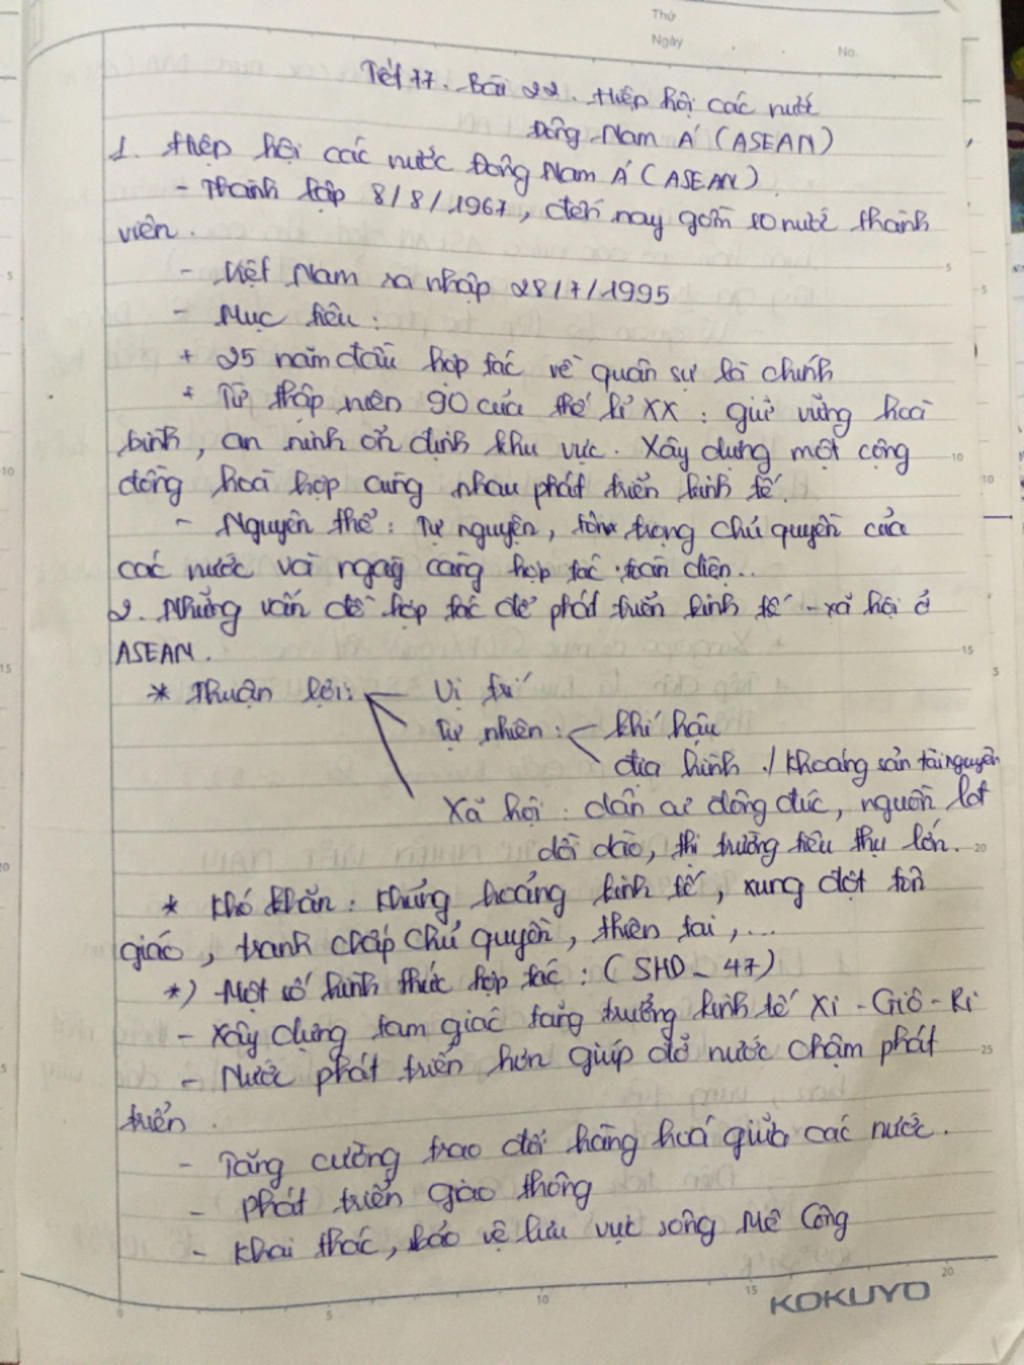 Thứ
Ngày
No.
Tiết 77. Bài 22. Hiệp hội các nước
Đông Nam Á (ASEAN)
1. Hiệp hội các nước Đông Nam Á (ASEAN).
- Thành lập 8/8/1967, đến nay gồm 10 nước thành
viên.
- Việt Nam ra nhập 28/7/1995
- Mục tiêu:
+ 25 năm đầu hợp tác về quân sự là chính
+ Từ thập niên 90 của thế kỉ XX: giữ vững hoà
bình, an ninh ổn định khu vực. Xây dựng một cộng
đồng hoà hợp cùng nhau phát triển kinh tế.
- Nguyên thể: Tự nguyện, tôn trọng chủ quyền của
các nước và ngày càng hợp tác toàn diện..
2. Những vấn đề hợp tác để phát triển kinh tế - xã hội ở
ASEAN.
* Thuận lợi: Vị trí
Tự nhiên: khí hậu
địa hình / khoáng sản tài nguyên
Xã hội: dân cư đông đúc, nguồn lđ
dồi dào, thị trường tiêu thụ lớn.
* Khó khăn: Khủng hoảng kinh tế, xung đột tôn
giáo, tranh chấp chủ quyền, thiên tai,...
*) Một số hình thức hợp tác: (SHD - 47)
- Xây dựng tam giác tăng trưởng kinh tế Xi - Giô - Ri
- Nước phát triển hơn giúp đỡ nước chậm phát
triển.
- Tăng cường trao đổi hàng hoá giữa các nước.
- phát triển giao thông
- Khai thác, bảo vệ lưu vực sông Mê Công
0 5 10 15 20
KOKUYO